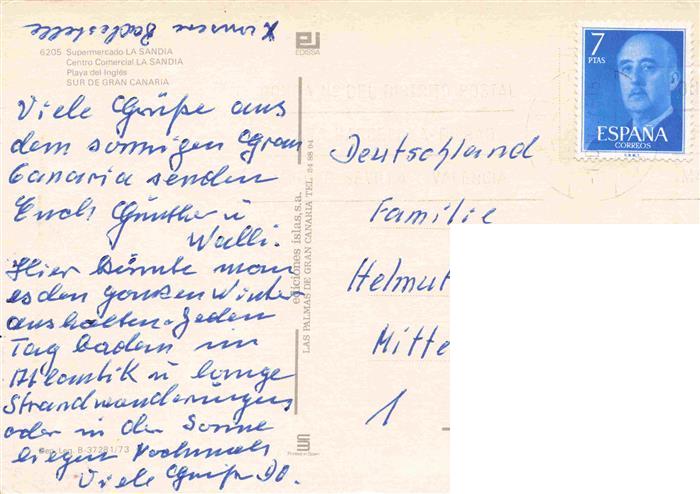 X unsere Badestelle
6205 Supermercado LA SANDIA
Centro Comercial LA SANDIA
Playa del Inglés
SUR DE GRAN CANARIA
Viele Grüße aus
dem sonnigen Gran
Canaria senden
Euch Günther u
Walli.
Hier könnte man
es den ganzen Winter
aushalten. Jeden
Tag baden im
Atlantik u lange
Strandwanderungen
oder in der Sonne
liegen Nochmals
Viele Grüße
Dep. Leg. B-37281/73
EDISSA
ediciones islas, s.a.
LAS PALMAS DE GRAN CANARIA TEL.
Printed in Spain
7
PTAS
ESPAÑA
CORREOS
Deutschland
Familie
Helmut
Mitte
1